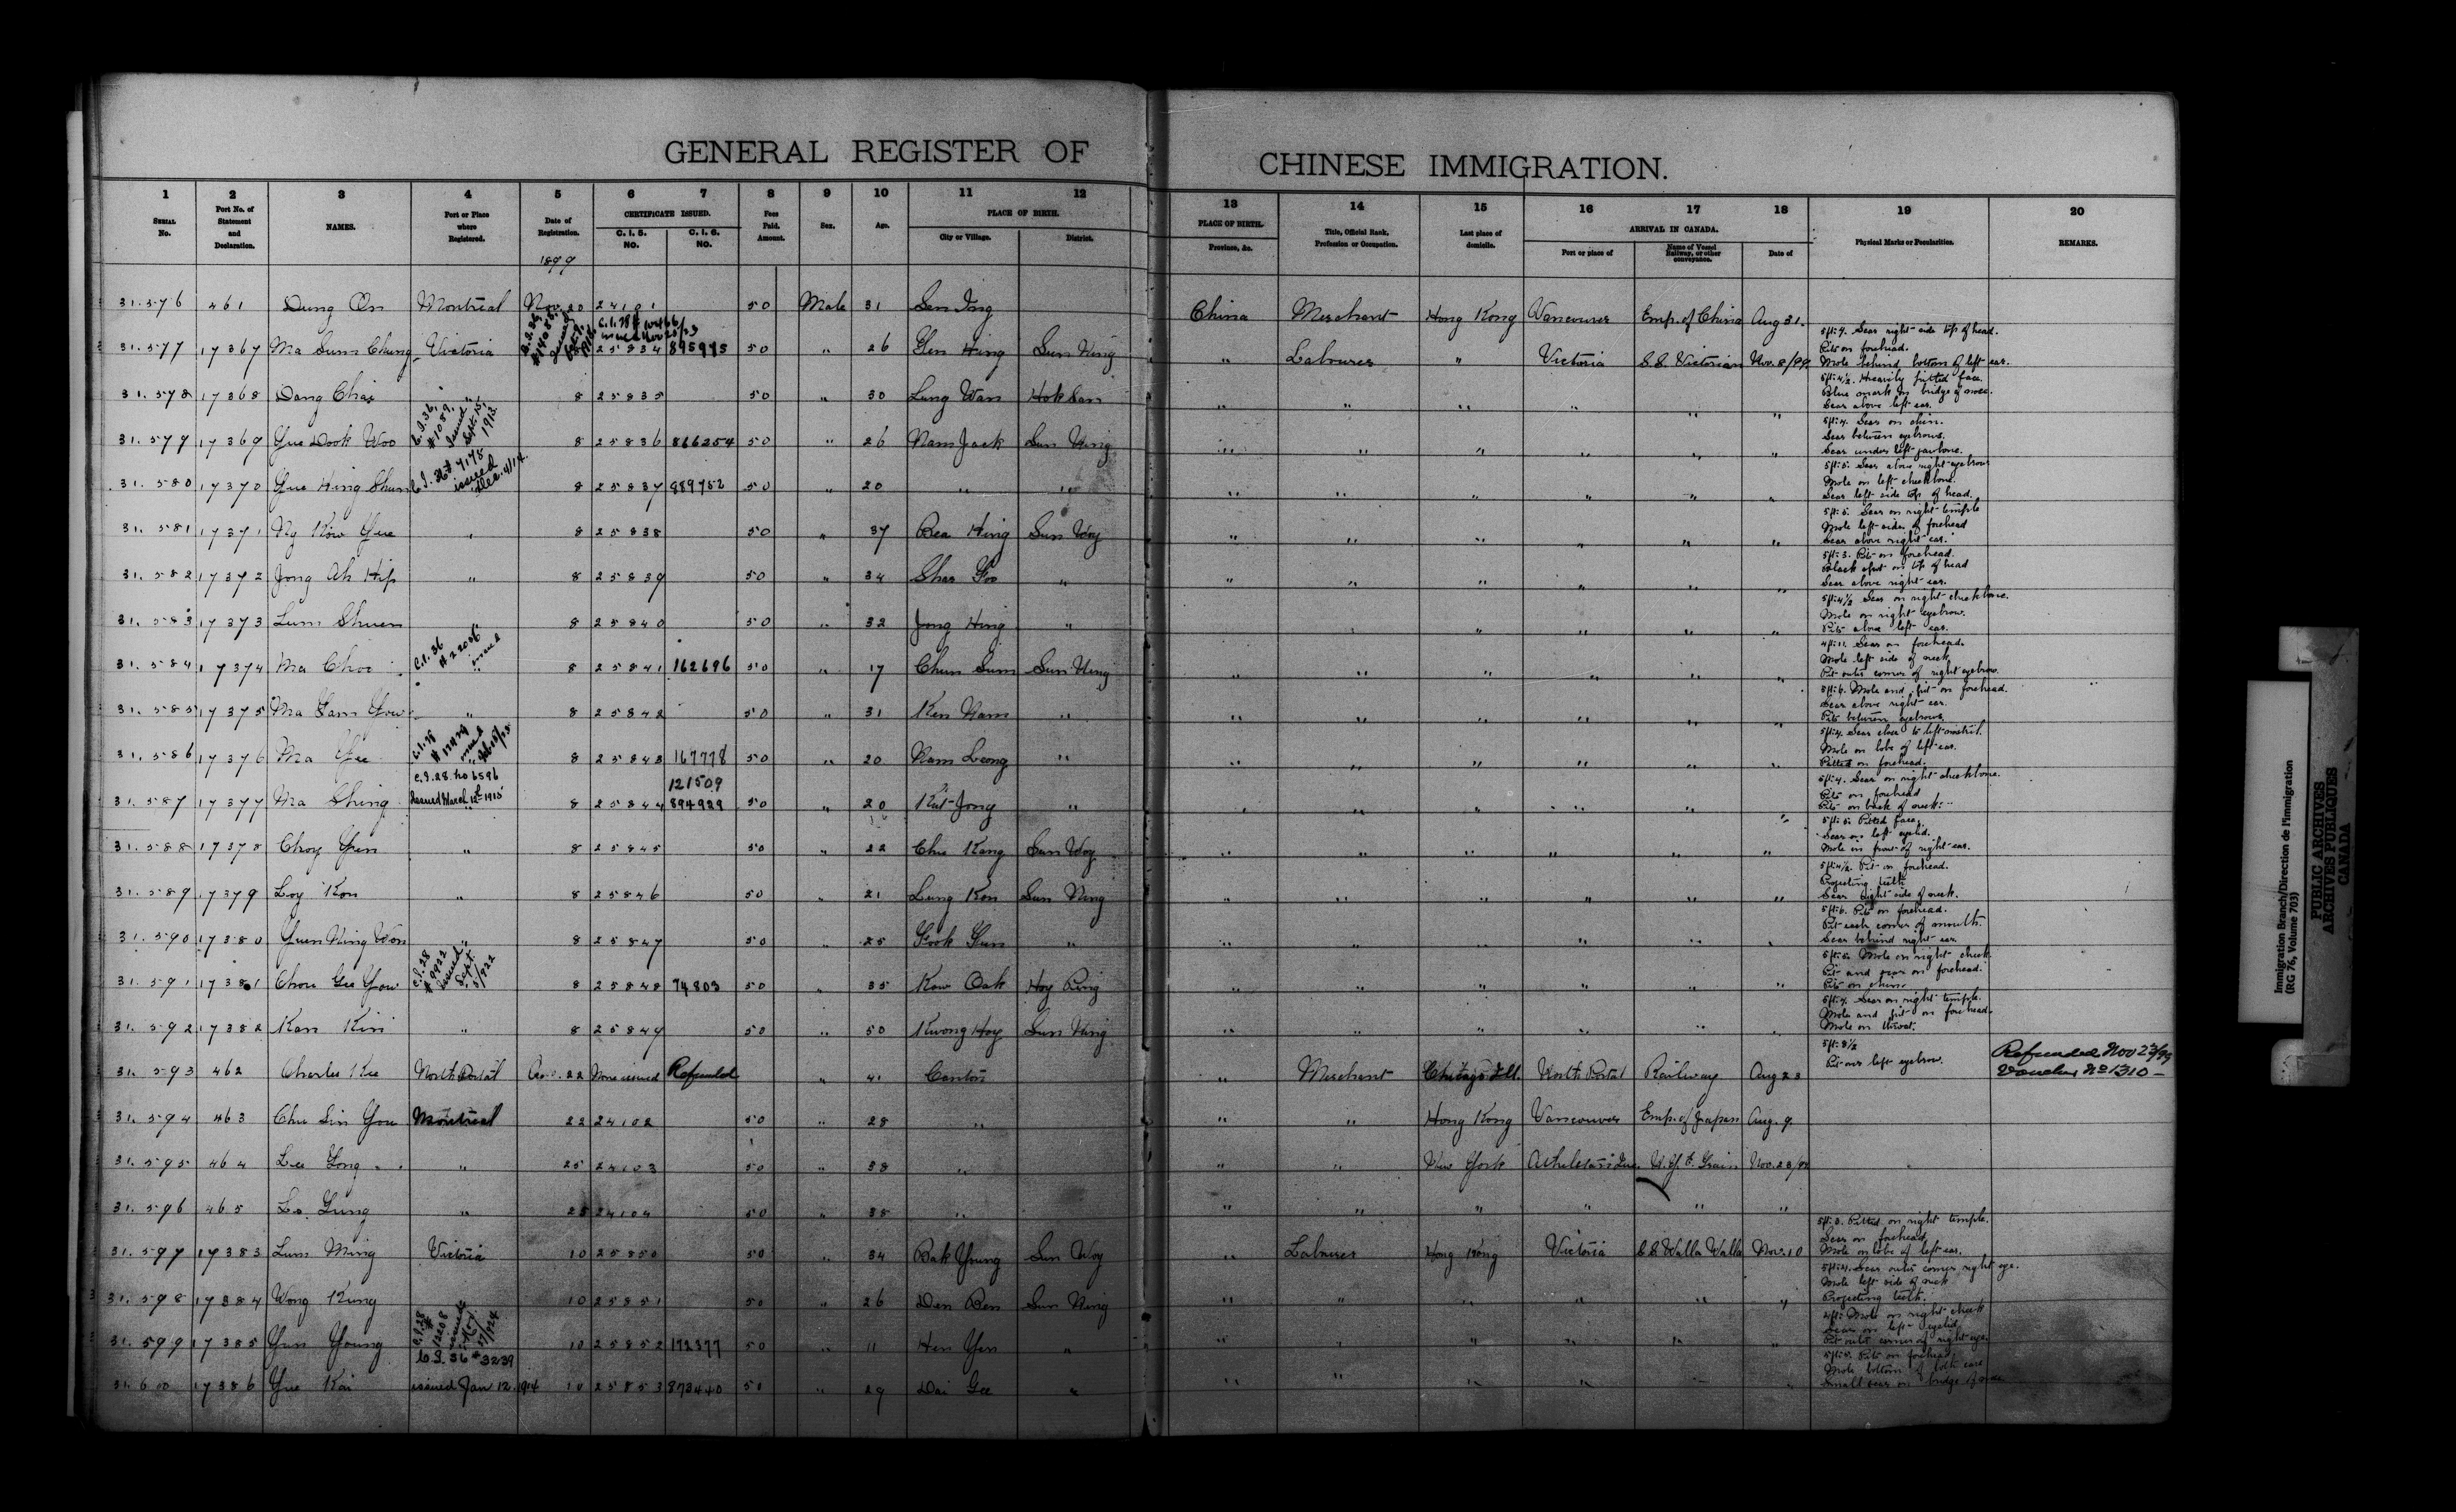 GENERAL REGISTER OF CHINESE IMMIGRATION.
1 2 3 4 5 6 7 8 9 10 11 12 13 14 15 16 17 18 19 20
SERIAL No.
Port No. of Statement and Declaration.
NAMES.
Port or Place where Registered.
Date of Registration.
CERTIFICATE ISSUED.
C. I. 5. NO.
C. I. 6. NO.
Fees Paid. Amount.
Sex.
Age.
PLACE OF BIRTH.
City or Village.
District.
PLACE OF BIRTH.
Province, &c.
Title, Official Rank, Profession or Occupation.
Last place of domicile.
ARRIVAL IN CANADA.
Port or place of
Name of Vessel Railway, or other conveyance.
Date of
Physical Marks or Peculiarities.
REMARKS.
1899
31.576 461 Dung On Montreal Nov. 20 24101 50 Male 31 Sen Ing China Merchant Hong Kong Vancouver Emp. of China Aug 31.
31.577 17367 Ma Sum Chung Victoria 25834 895975 50 " 26 Hing Sun Ning " Labourer " Victoria S.S. Victorian Nov. 8/99
5ft:4. Scar right side top of head.
Pits on forehead.
Mole behind bottom of left ear.
31.578 17368 Dang Chai " 8 25835 50 " 30 Lung Wan Hok San " " " " " "
5ft:4½. Heavily pitted face.
Blue mark on bridge of nose.
Scar above left ear.
C.I.36, #1089, Issued Sept. 15, 1913
31.579 17369 Yue Dook Woo 8 25836 866254 50 " 26 Nam Jack Sun Ning " " " " " "
5ft:4. Scar on chin.
Scar between eyebrows.
Scar under left jawbone.
C.I. 36 # 7178 issued Dec. 4/14.
31.580 17370 Yue Hing Shun 8 25837 889752 50 " 20 " " " " " " " "
5ft:5. Scar above right eyebrow
Mole on left cheekbone.
Scar left side top of head.
31.581 17371 Ny Kow Yue " 8 25838 50 " 37 Bea Hing Sun Woy " " " " " "
5ft:5. Scar on right temple
Mole left side of forehead
Scar above right ear.
31.582 17372 Jong Ah Hip " 8 25839 50 " 34 Shar Foo " " " " " " "
5ft:3. Pits on forehead.
Black spot on top of head
Scar above right ear.
31.583 17373 Lum Shuen 8 25840 50 " 32 Jong Hing " " " " " " "
5ft:4½ Scar on right cheekbone.
Mole on right eyebrow.
Pits above left ear.
C.I. 36 # 22006 issued
31.584 17374 Ma Choo " 8 25841 162696 50 " 17 Chun Sum Sun Ning " " " " " "
4ft:11. Scar on forehead.
Mole left side of neck
Pit outer corner of right eyebrow.
31.585 17375 Ma Gam Yow " 8 25842 50 " 31 Ken Nam " " " " " " "
5ft:6. Mole and pit on forehead.
Scar above right ear.
Pits between eyebrows.
31.586 17376 Ma Yee " 8 25843 167778 50 " 20 Nam Leong " " " " " " "
5ft:4. Scar close to left nostril.
Mole on lobe of left ear.
Pitted on forehead.
C.I.28. No 6596 121509
Issued March 12th 1915
31.587 17377 Ma Shing " 8 25844 894929 50 " 20 Kit Jong " " " " " " "
5ft:4. Scar on right cheekbone.
Pits on forehead
Pits on back of neck.
31.588 17378 Choy Yin " 8 25845 50 " 22 Chu Kang Sun Woy " " " " " "
5ft:5. Pitted face.
Scar on left eyelid.
Mole in front of right ear.
31.589 17379 Loy Kon " 8 25846 50 " 21 Lung Kon Sun Ning " " " " " "
5ft:4½. Pit on forehead.
Projecting teeth
Scar right side of neck.
31.590 17380 Yuen Ning Won " 8 25847 50 " 25 Fook Gun " " " " " " "
5ft:6. Pits on forehead.
Pit each corner of mouth.
Scar behind right ear.
C.I.28 # 9922 issued Sept. 5/922
31.591 17381 Chou Gee Yow 8 25848 74803 50 " 35 Kow Oak Hoy Ping " " " " " "
5ft:5. Mole on right cheek.
Pit and scar on forehead.
Pits on chin.
31.592 17382 Kan Kin " 8 25849 50 " 50 Kwong Hoy Sun Ning " " " " " "
5ft:4. Scar on right temple.
Mole and pit on forehead.
Mole on throat.
31.593 462 Charles Kee North Portal 22 None issued Refunded " 41 Canton " Merchant Chicago Ill. North Portal Railway Aug 23
5ft:8½
Pit over left eyebrow.
Refunded Nov 23/99
Voucher No 1310 —
31.594 463 Chu Sin You Montreal 22 24102 50 " 28 " " " Hong Kong Vancouver Emp. of Japan Aug. 9.
31.595 464 Lee Long " 25 24103 50 " 38 " " " New York Athelstan Que. N.Y.C. Train Nov. 23/99
31.596 465 Lo. Gung " 25 24104 50 " 35 " " " " " " "
31.597 17383 Lum Ming Victoria 10 25850 50 " 34 Bak Yung Sun Woy " Labourer Hong Kong Victoria S.S. Walla Walla Nov. 10
5ft:3. Pitted on right temple.
Scar on forehead
Mole on lobe of left ear.
31.598 17384 Wong Kung 10 25851 50 " 26 Den Ben Sun Ning " " " " " "
5ft:4. Scar outer corner right eye.
Mole left side of neck
Projecting teeth.
C.I.28 # 12208 issued Nov. 17/924
31.599 17385 Yun Young 10 25852 172377 50 " 11 Hen Yen " " " " " " "
4ft: Mole on right cheek
Scar on left eyelid.
Pit outer corner of right eye.
C.I. 36 #3239
issued Jan 12. 1914
31.600 17386 Yue Kai 10 25853 873440 50 " 29 Dai Gee " " " " " " "
5ft:5. Pits on forehead.
Mole bottom of both ears
Small scar on bridge of nose
Immigration Branch/Direction de l'immigration
(RG 76, Volume 703)
PUBLIC ARCHIVES
ARCHIVES PUBLIQUES
CANADA